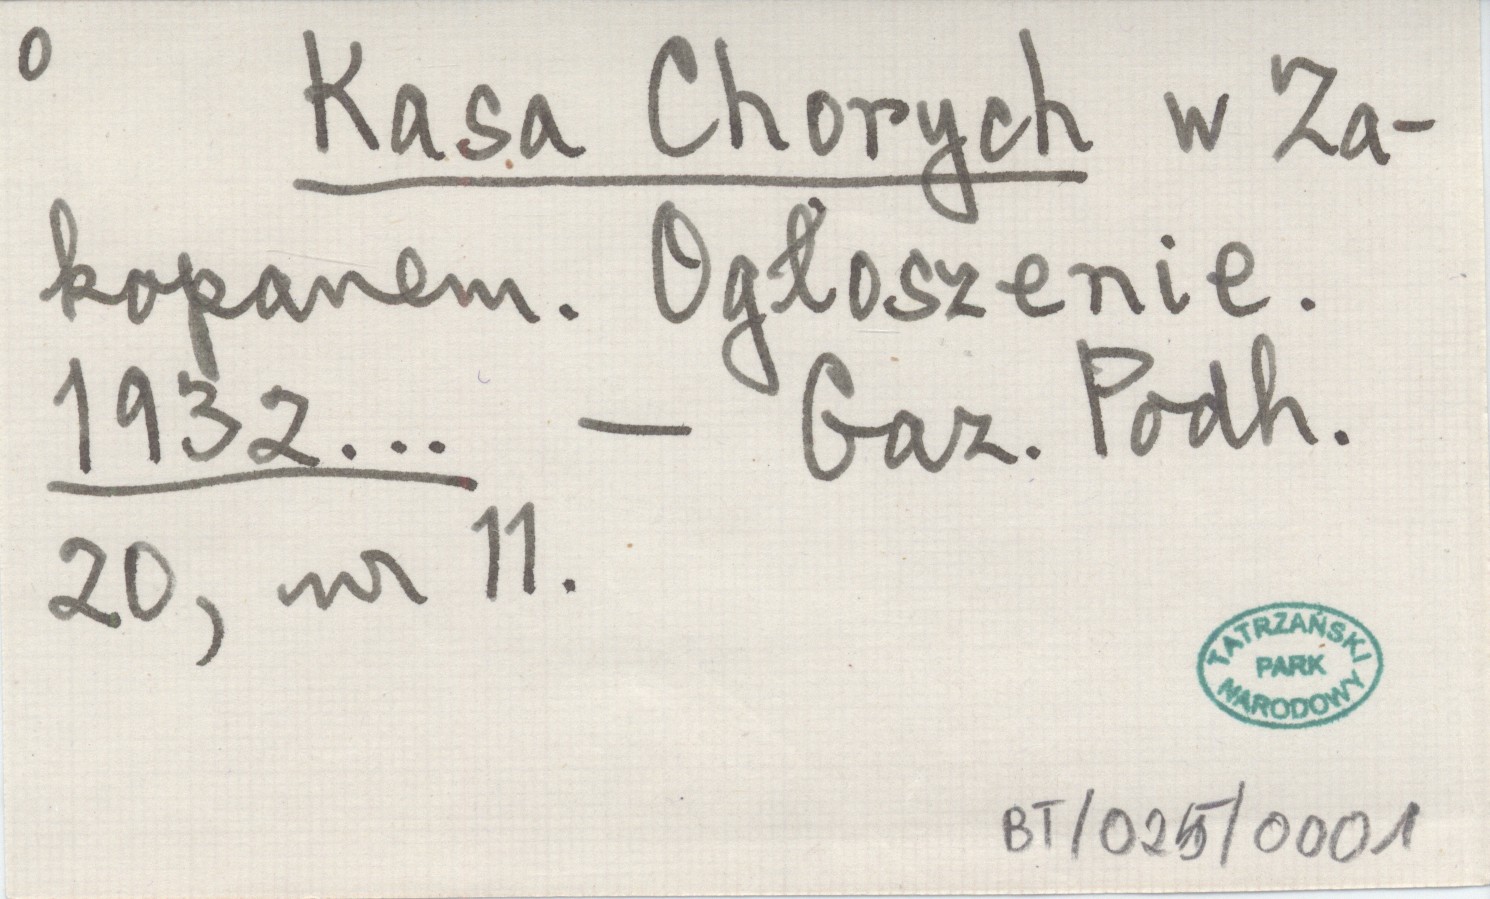 0
Kasa Chorych w Za-
kopanem. Ogłoszenie.
1932... — Gaz. Podh.
20, nr 11.
TATRZAŃSKI
PARK
NARODOWY
BT/025/0001